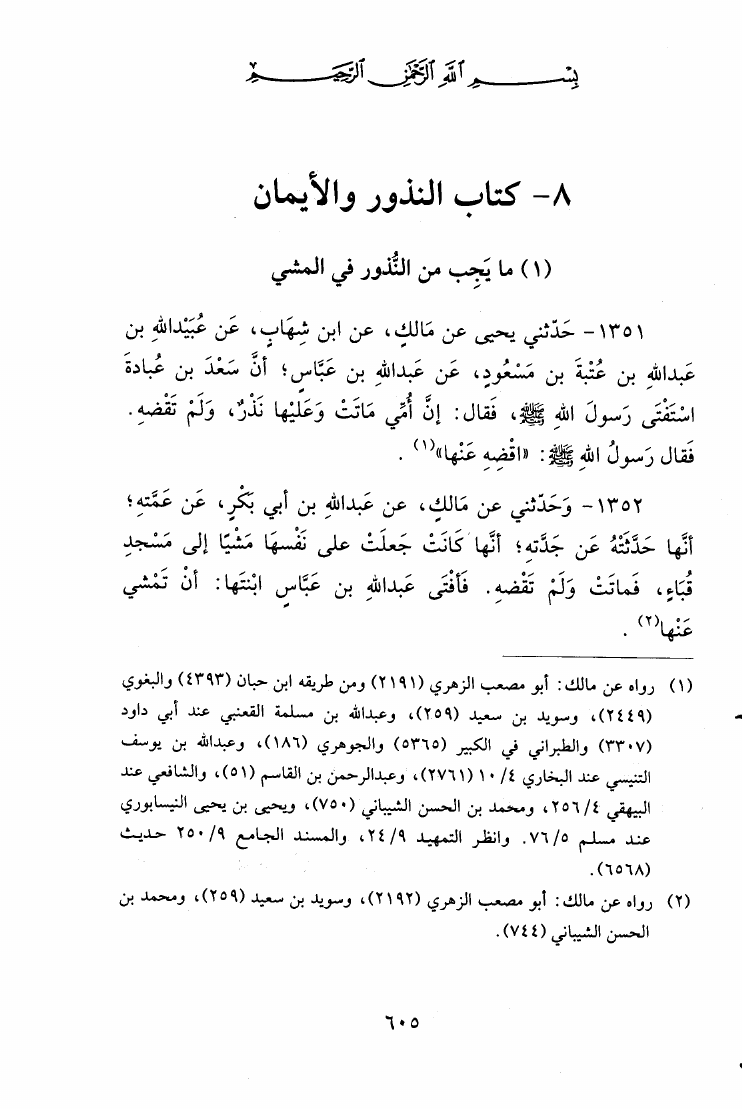 بِسْمِ اللَّهِ الرَّحْمَٰنِ الرَّحِيمِ
٨- كتاب النذور والأيمان
(١) ما يَجِب من النُّذور في المشي
١٣٥١- حَدّثني يحيى عن مَالكٍ، عن ابن شِهَابٍ، عَن عُبَيْدالله بن
عَبدالله بن عُتْبَةَ بن مَسْعُودٍ، عَن عَبدالله بن عَبَّاسٍ؛ أنَّ سَعْدَ بن عُبادةَ
اسْتَفْتَى رَسولَ اللهِ ﷺ، فَقال: إنَّ أُمِّي مَاتَتْ وَعَلَيْها نَذْرٌ، وَلَمْ تَقْضهِ.
فَقال رَسولُ اللهِ ﷺ: «اقْضِهِ عَنْها»(١) .
١٣٥٢- وَحَدّثني عن مَالكٍ، عن عَبدالله بن أبي بَكْرٍ، عَن عَمَّته؛
أنَّها حَدَّثَتْهُ عَن جَدَّتهِ؛ أنَّها كَانَتْ جَعلَتْ على نَفْسهَا مَشْيًا إلى مَسْجدِ
قُبَاءٍ، فَماتَتْ وَلَمْ تَقْضهِ. فَأفْتَى عَبدالله بن عَبَّاسٍ ابْنتَها: أنْ تَمْشي
عَنْها(٢) .
(١) رواه عن مالك: أبو مصعب الزهري (٢١٩١) ومن طريقه ابن حبان (٤٣٩٣) والبغوي
(٢٤٤٩)، وسويد بن سعيد (٢٥٩)، وعبدالله بن مسلمة القعنبي عند أبي داود
(٣٣٠٧) والطبراني في الكبير (٥٣٦٥) والجوهري (١٨٦)، وعبدالله بن يوسف
التنيسي عند البخاري ٤/ ١٠ (٢٧٦١)، وعبدالرحمن بن القاسم (٥١)، والشافعي عند
البيهقي ٤/ ٢٥٦، ومحمد بن الحسن الشيباني (٧٥٠)، ويحيى بن يحيى النيسابوري
عند مسلم ٥/ ٧٦. وانظر التمهيد ٩/ ٢٤، والمسند الجامع ٩/ ٢٥٠ حديث
(٦٥٦٨).
(٢) رواه عن مالك: أبو مصعب الزهري (٢١٩٢)، وسويد بن سعيد (٢٥٩)، ومحمد بن
الحسن الشيباني (٧٤٤).
٦٠٥